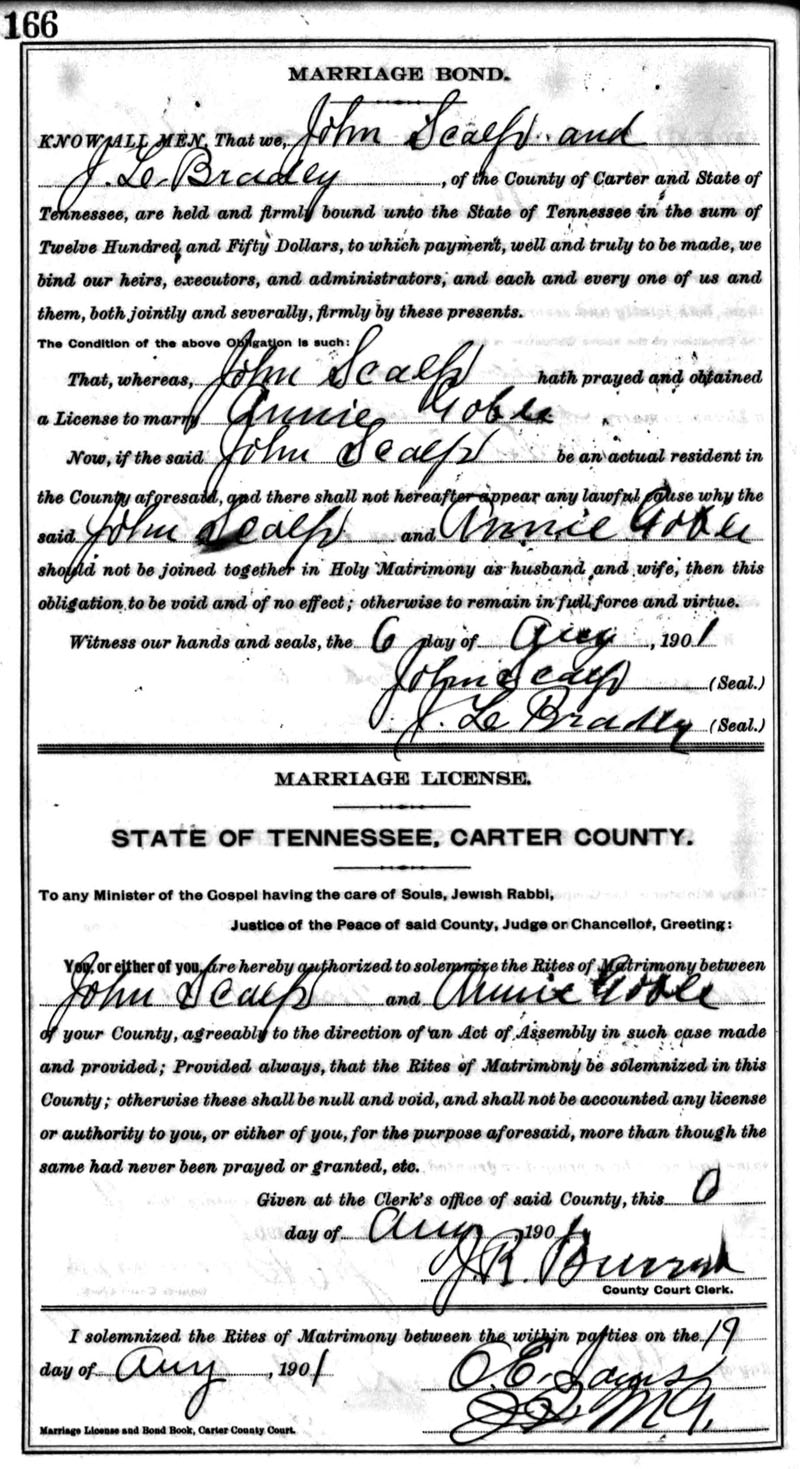 166
MARRIAGE BOND.
KNOW ALL MEN, That we, John Scalf and
J. Le Bradley, of the County of Carter and State of
Tennessee, are held and firmly bound unto the State of Tennessee in the sum of
Twelve Hundred and Fifty Dollars, to which payment, well and truly to be made, we
bind our heirs, executors, and administrators, and each and every one of us and
them, both jointly and severally, firmly by these presents.
The Condition of the above Obligation is such:
That, whereas, John Scalf hath prayed and obtained
a License to marry Annie Goble
Now, if the said John Scalf be an actual resident in
the County aforesaid, and there shall not hereafter appear any lawful cause why the
said John Scalf and Annie Goble
should not be joined together in Holy Matrimony as husband and wife, then this
obligation to be void and of no effect; otherwise to remain in full force and virtue.
Witness our hands and seals, the 6 day of Aug, 1901
John Scalf (Seal.)
J. Le Bradley (Seal.)
MARRIAGE LICENSE.
STATE OF TENNESSEE, CARTER COUNTY.
To any Minister of the Gospel having the care of Souls, Jewish Rabbi,
Justice of the Peace of said County, Judge or Chancellor, Greeting:
You, or either of you, are hereby authorized to solemnize the Rites of Matrimony between
John Scalf and Annie Goble
of your County, agreeably to the direction of an Act of Assembly in such case made
and provided; Provided always, that the Rites of Matrimony be solemnized in this
County; otherwise these shall be null and void, and shall not be accounted any license
or authority to you, or either of you, for the purpose aforesaid, more than though the
same had never been prayed or granted, etc.
Given at the Clerk's office of said County, this
day of Aug, 1901
J. R.
County Court Clerk.
I solemnized the Rites of Matrimony between the within parties on the 19
day of Aug, 1901
C. E.
Marriage License and Bond Book, Carter County Court.